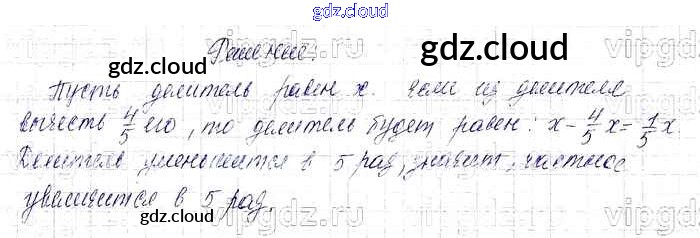 gdz.cloud
Решение.
gdz.cloud
gdz.cloud
Пусть делитель равен x. Если из делителя
вычесть 4/5 его, то делитель будет равен: x - 4/5 x = 1/5 x.
Делитель уменьшится в 5 раз, значит, частное
увеличится в 5 раз.
gdz.cloud
gdz.cloud